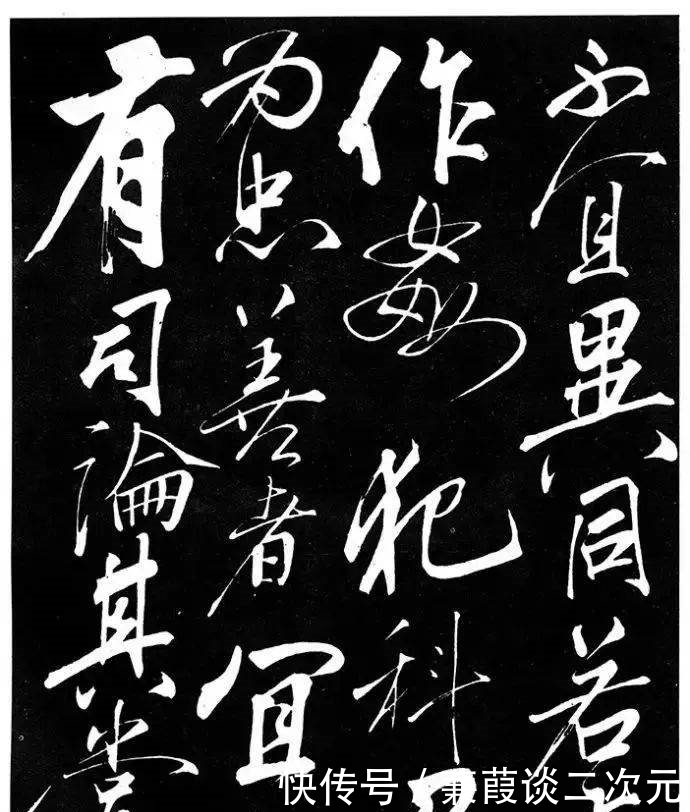 不宜異同若
作姦犯科
为忠善者宜
有司論其
快传号 / 蒹葭谈二次元